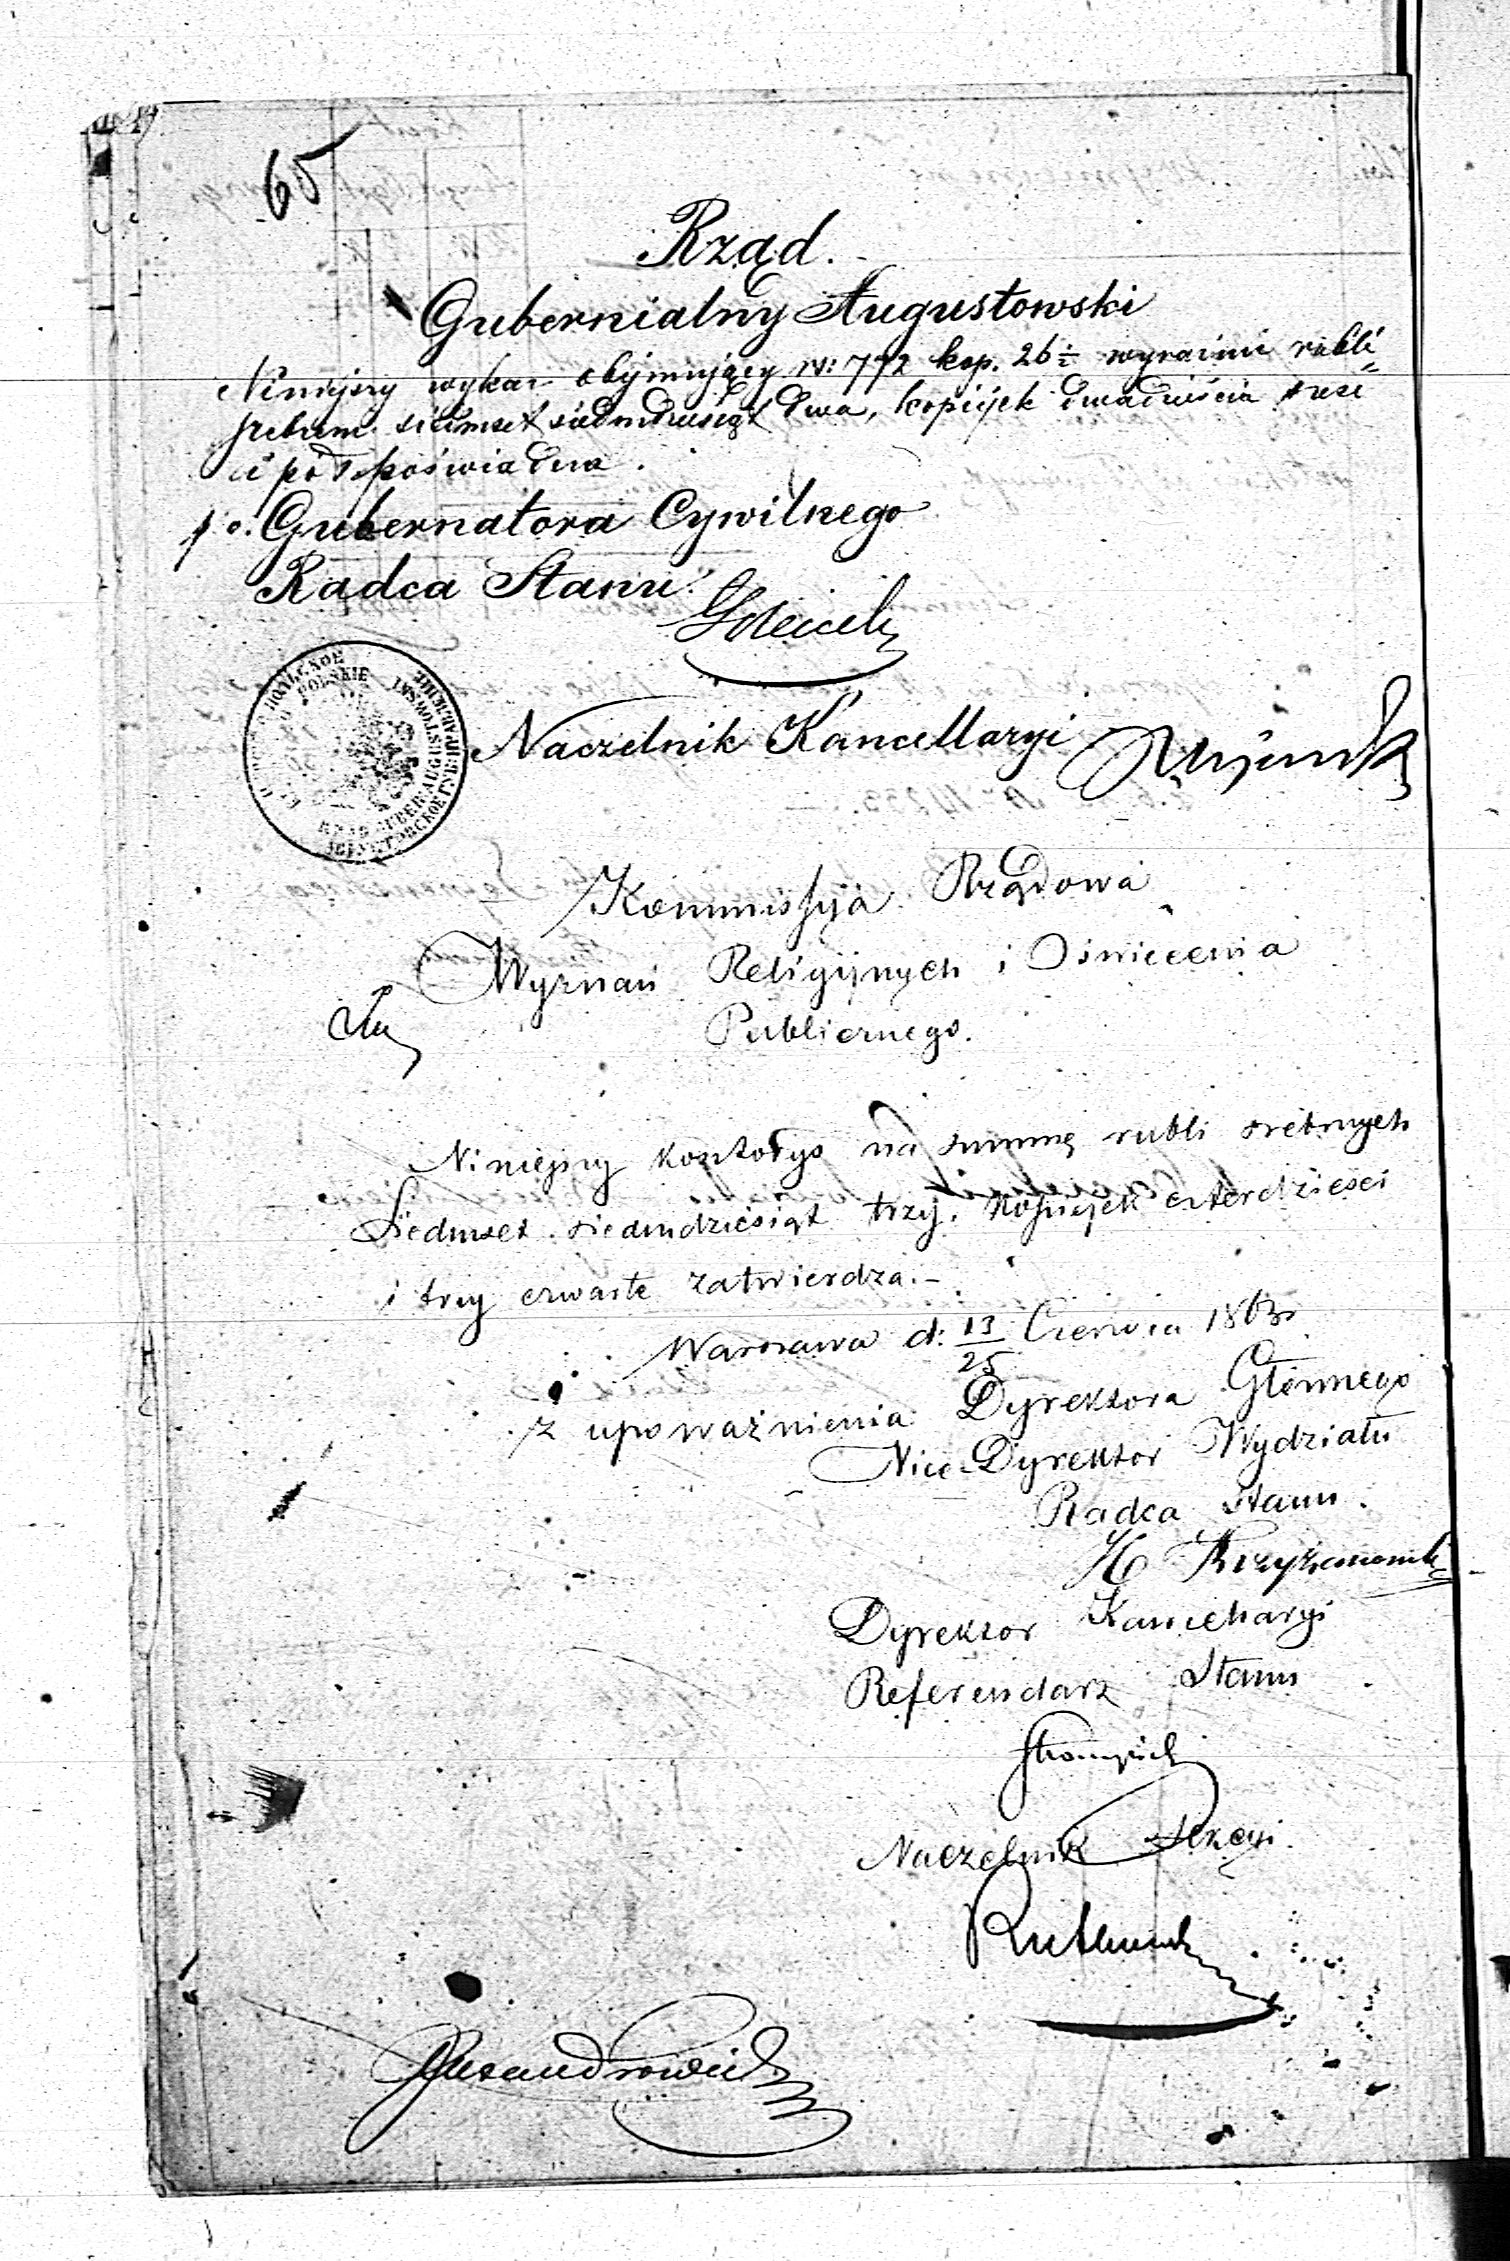 65
Rząd.
Gubernialny Augustowski
Niniejszy wykaz obejmujący rs: 772 kop. 26½ wyraźnie rubli
srebrem siedmset siedmdziesiąt dwa, kopiejek dwadzieścia sześć
i pół poświadcza.
p.o. Gubernatora Cywilnego
Radca Stanu
RZĄD GUBER: AUGUSTOWSKI
Naczelnik Kancellaryi
Kommissyja Rządowa
Wyznań Religijnych i Oświecenia
Publicznego.
Niniejszy kosztorys na summę rubli srebnych
Siedmset siedmdziesiąt trzy, kopiejek czterdzieści
i trzy czwarte zatwierdza.-
Warszawa d: 13/25 Czerwca 1863
Z upoważnienia Dyrektora Głównego
Vice-Dyrektor Wydziału
Radca Stanu.
H Krzyżanowski
Dyrektor Kancellaryi
Referendarz Stanu
Naczelnik Sekcyi.